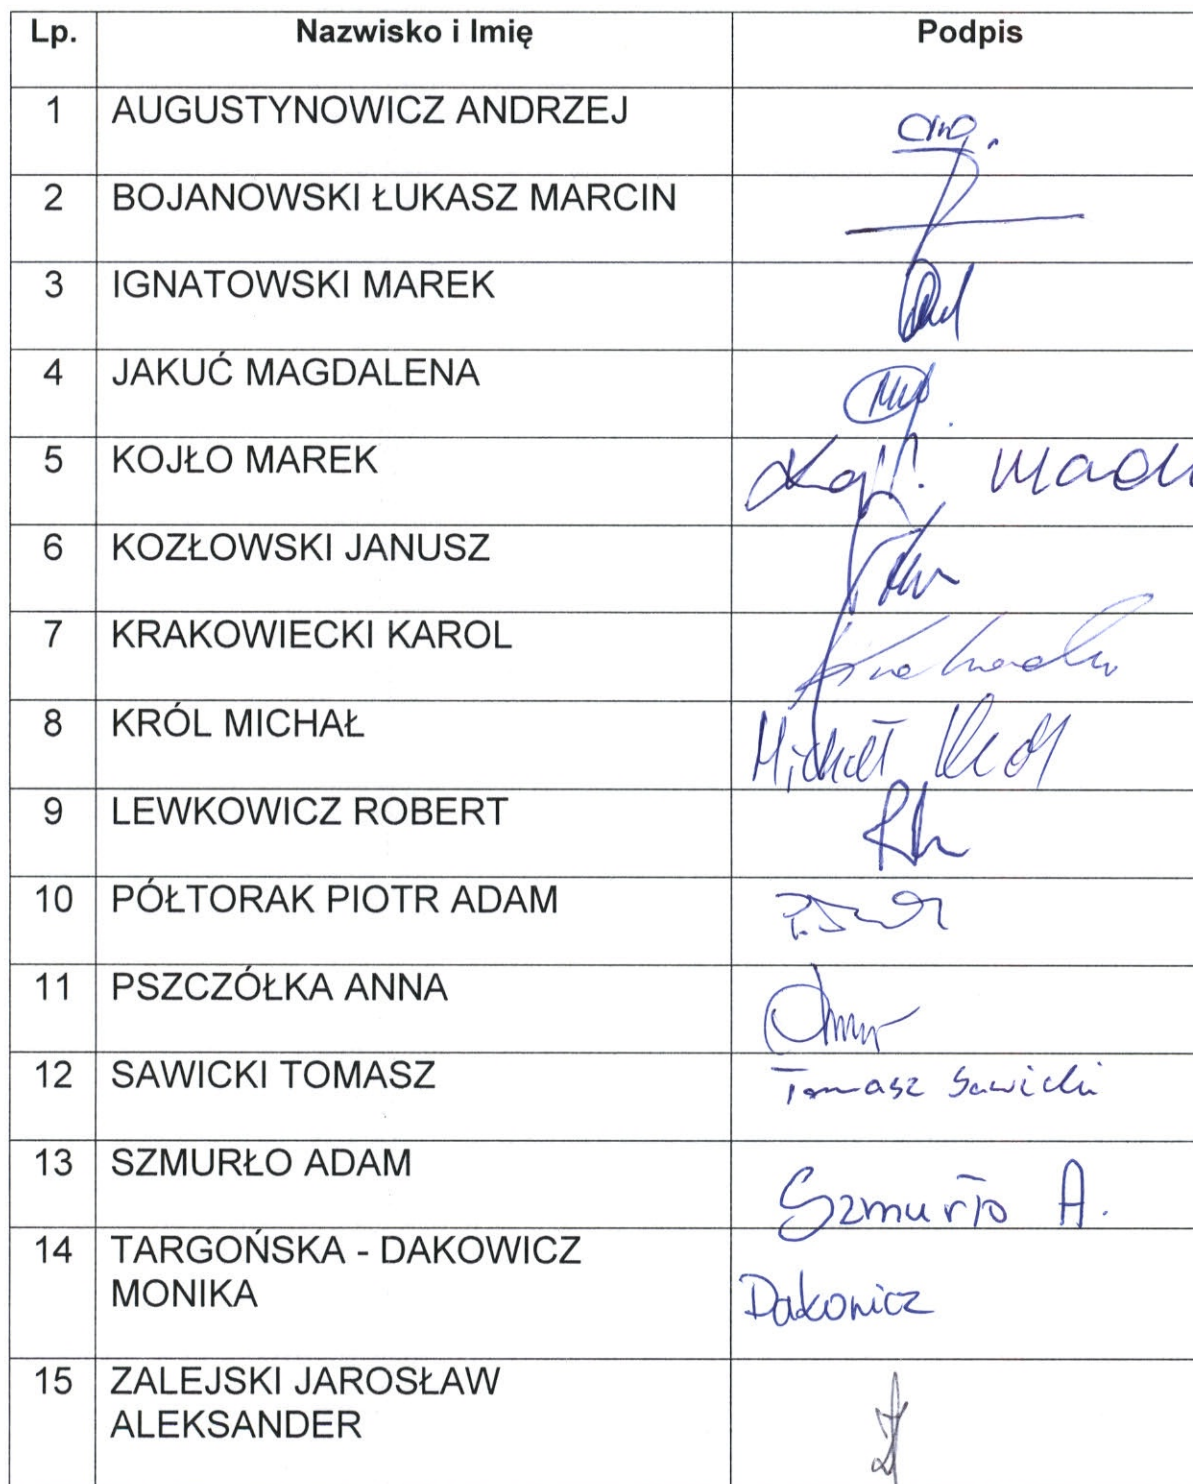 Lp. Nazwisko i Imię Podpis
1 AUGUSTYNOWICZ ANDRZEJ
2 BOJANOWSKI ŁUKASZ MARCIN
3 IGNATOWSKI MAREK
4 JAKUĆ MAGDALENA
5 KOJŁO MAREK
6 KOZŁOWSKI JANUSZ
7 KRAKOWIECKI KAROL
8 KRÓL MICHAŁ Michał Król
9 LEWKOWICZ ROBERT
10 PÓŁTORAK PIOTR ADAM
11 PSZCZÓŁKA ANNA
12 SAWICKI TOMASZ Tomasz Sawicki
13 SZMURŁO ADAM Szmurło A.
14 TARGOŃSKA - DAKOWICZ
MONIKA
Dakowicz
15 ZALEJSKI JAROSŁAW
ALEKSANDER